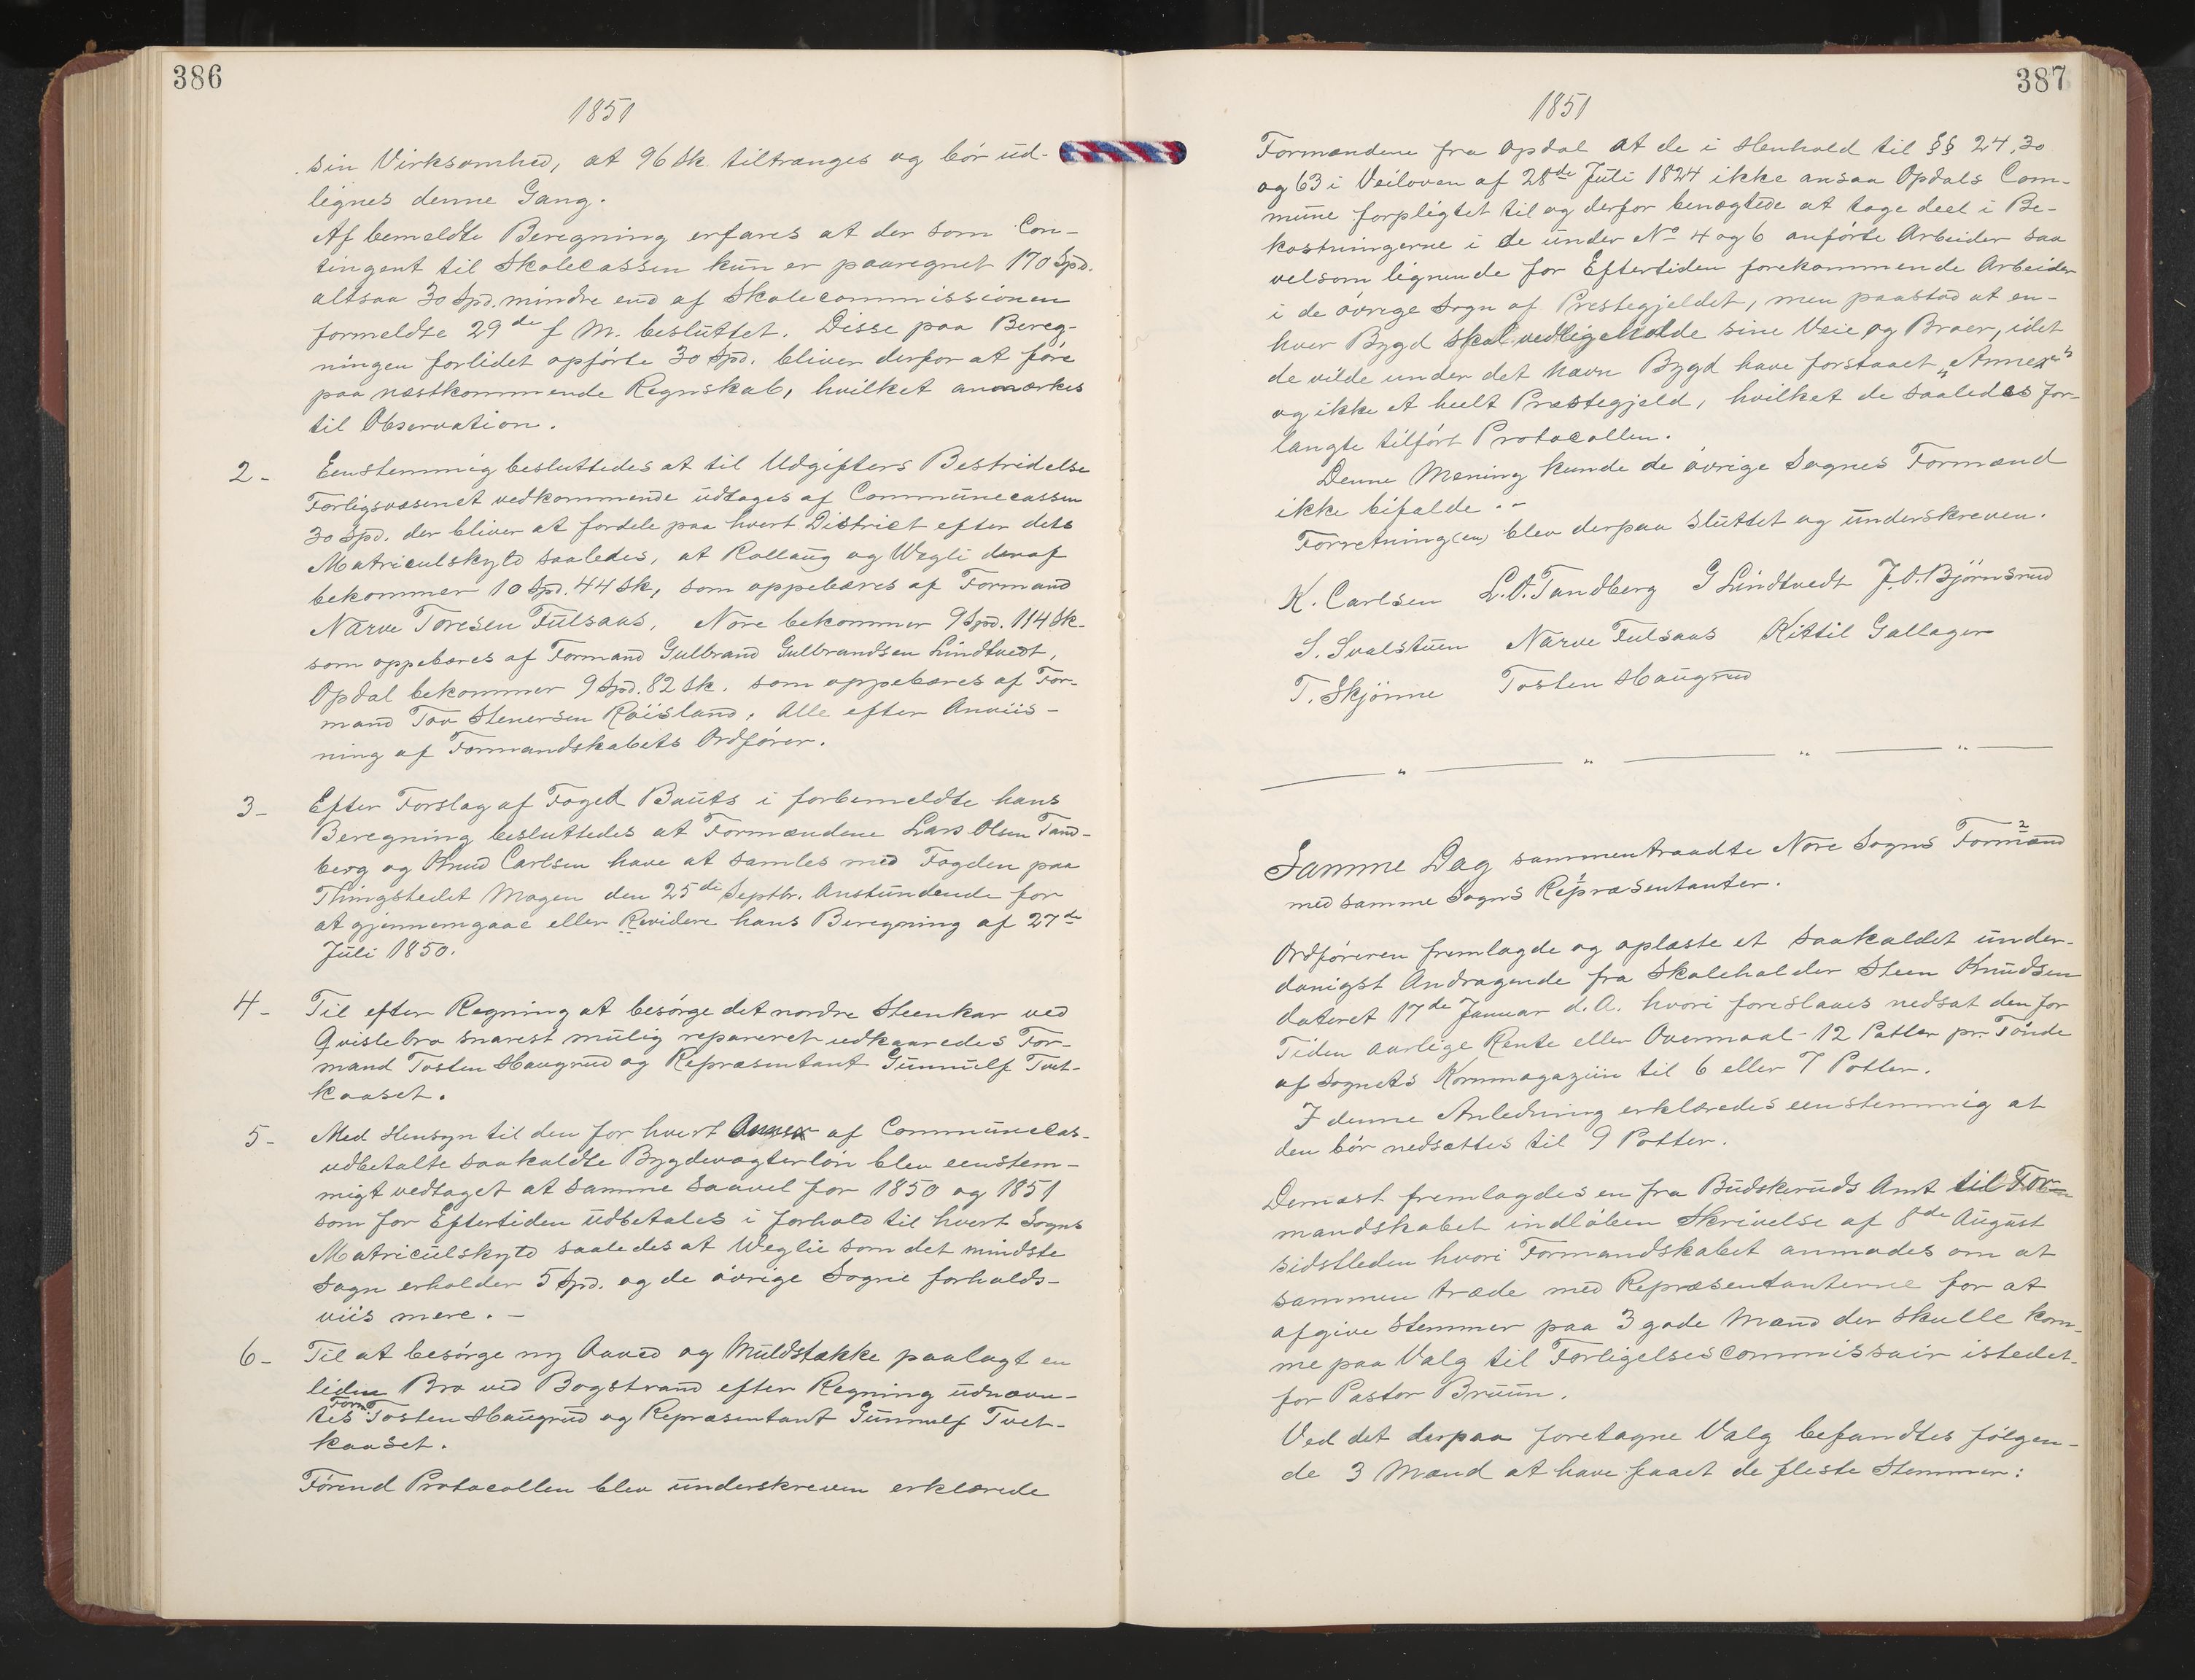 386
1851
sin Virksomhed, at 96 Sk. tiltrænges og bör ud-
lignes denne Gang.
Af bemeldte Beregning erfares at der som Con-
tingent til Skolecassen kun er paaregnet 170 Spd.
altsaa 30 Spd. mindre end af Skolecommissionen
formeldte 29de f M. besluttet. Disse paa Bereg-
ningen forlidet opförte 30 Spd. bliver derfor at före
paa næstkommende Regnskab, hvilket anmærkes
til Observation.
2- Eenstemmig besluttedes at til Udgifters Bestridelse
Forligsvæsenet vedkommende udtages af Communecassen
30 Spd. der bliver at fordele paa hvert District efter dets
Matriculskyld saaledes, at Rollaug og Wegli deraf
bekommer 10 Spd. 44 Sk, som oppebæres af Formand
Narve Toresen Fulsaas, Nore bekommer 9 Spd. 114 Sk.
som oppebæres af Formand Gulbrand Gulbrandsen Lindtvedt,
Opdal bekommer 9 Spd. 82 Sk. som oppebæres af For-
mand Tov Stenersen Röisland. Alle efter Anviis-
ning af Formandskabets Ordförer.
3- Efter Forslag af Foged Bauts i forbemeldte hans
Beregning besluttedes at Formændene Lars Olsen Tand-
berg og Knud Carlsen have at samles med Fogden paa
Thingstedet Mogen den 25de Septbr. Anstundende for
at gjennemgaae eller Revidere hans Beregning af 27de
Juli 1850.
4- Til efter Regning at besörge det nordre Steenkar ved
Qvislebro snarest mulig repareret udkaaredes For-
mand Tosten Haugrud og Repræsentant Gunnulf Tvet-
kaaset.
5- Med Hensyn til den for hvert Annex af Communecas-
udbetalte saakaldte Bygdevægterlön blev eenstem-
migt vedtaget at samme saavel for 1850 og 1851
som for Eftertiden udbetales i forhold til hvert Sogns
Matriculskyld saaledes at Weglie som det mindste
Sogn erholder 5 Spd. og de övrige Sogne forholds-
viis mere. -
6- Til at besörge ny Aaved og Muldstække paalagt en
liden Bro ved Bogstrand efter Regning udnævn-
tes Form. Tosten Haugrud og Repræsentant Gunnulf Tvet-
kaaset.
Förend Protocollen blev underskreven erklærede
387
1851
Formændene fra Opdal at de i Henhold til §§ 24, 30
og 63 i Veiloven af 28de Juli 1824 ikke ansaa Opdals Com-
mune forpligtet til og derfor benægtede at tage deel i Be-
kostningerne i de under No 4 og 6 anförte Arbeider saa
velsom lignende for Eftertiden forekommende Arbeider
i de övrige Sogn af Prestegjeldet, men paastod at en-
hver Bygd skal vedligeholde sine Veie og Broer, idet
de vilde under det Navn Bygd have forstaaet "Annex"
og ikke et heelt Præstegjeld, hvilket de saaledes for-
langte tilfört Protocollen.
Denne Mening kunde de övrige Sognes Formænd
ikke bifalde. -
Forretning(en) blev derpaa sluttet og underskreven.
K. Carlsen L. O. Tandberg G Lindtvedt J. O. Björnsrud
S. Svalstuen Narve Fulsaas Kittil Gallager
T. Skjönne Tosten Haugrud
Samme Dag sammentraadte Nore Sogns 2 Formænd
med samme Sogns Repræsentanter.
Ordföreren fremlagde og oplæste et saakaldet under-
danigst Andragende fra Skoleholder Steen Knudsen
dateret 17de Januar d. A. hvori foreslaaes nedsat den for
Tiden aarlige Rente eller Overmaal 12 Potter pr. Tönde
af Sognets Kornmagaziin til 6 eller 7 Potter.
I denne Anledning erklæredes eenstemmig at
den bör nedsættes til 9 Potter.
Dernæst fremlagdes en fra Budskeruds Amt til For-
mandskabet indlöben Skrivelse af 8de August
sidstleden hvori Formandskabet anmodes om at
sammen træde med Repræsentanterne for at
afgive Stemmer paa 3 gode Mænd der skulle kom-
me paa Valg til Forligelsescommissair istedet-
for Pastor Bruun.
Ved det derpaa foretagne Valg befandtes fölgen-
de 3 Mænd at have faaet de fleste Stemmer: